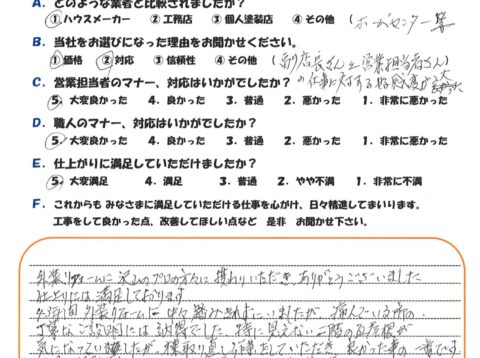 A. どのような業者と比較されましたか?
①ハウスメーカー ②工務店 ③個人塗装店 ④その他 ( ホームセンター等
B. 当社をお選びになった理由をお聞かせください。
①価格 ②対応 ③信頼性 ④その他 (副店長さんと営業担当者さん)
の仕事に対する好感度が大
C. 営業担当者のマナー、対応はいかがでしたか?
5. 大変良かった 4. 良かった 3. 普通 2. 悪かった 1. 非常に悪かった
D. 職人のマナー、対応はいかがでしたか?
5. 大変良かった 4. 良かった 3. 普通 2. 悪かった 1. 非常に悪かった
E. 仕上がりに満足していただけましたか?
5. 大変満足 4. 満足 3. 普通 2. やや不満 1. 非常に不満
F. これからも みなさまに満足していただける仕事を心がけ、日々精進してまいります。
工事をして良かった点、改善してほしい点など 是非 お聞かせ下さい。
外装リフォームに沢山のプロの方々に携わりいただき、ありがとうございました
仕上りには満足しております
外装リフォームに中々踏みきれずにいましたが、痛んでいる所の、
丁寧なご説明には納得でした。特に見えない二階の瓦屋根が
気になっていましたが、